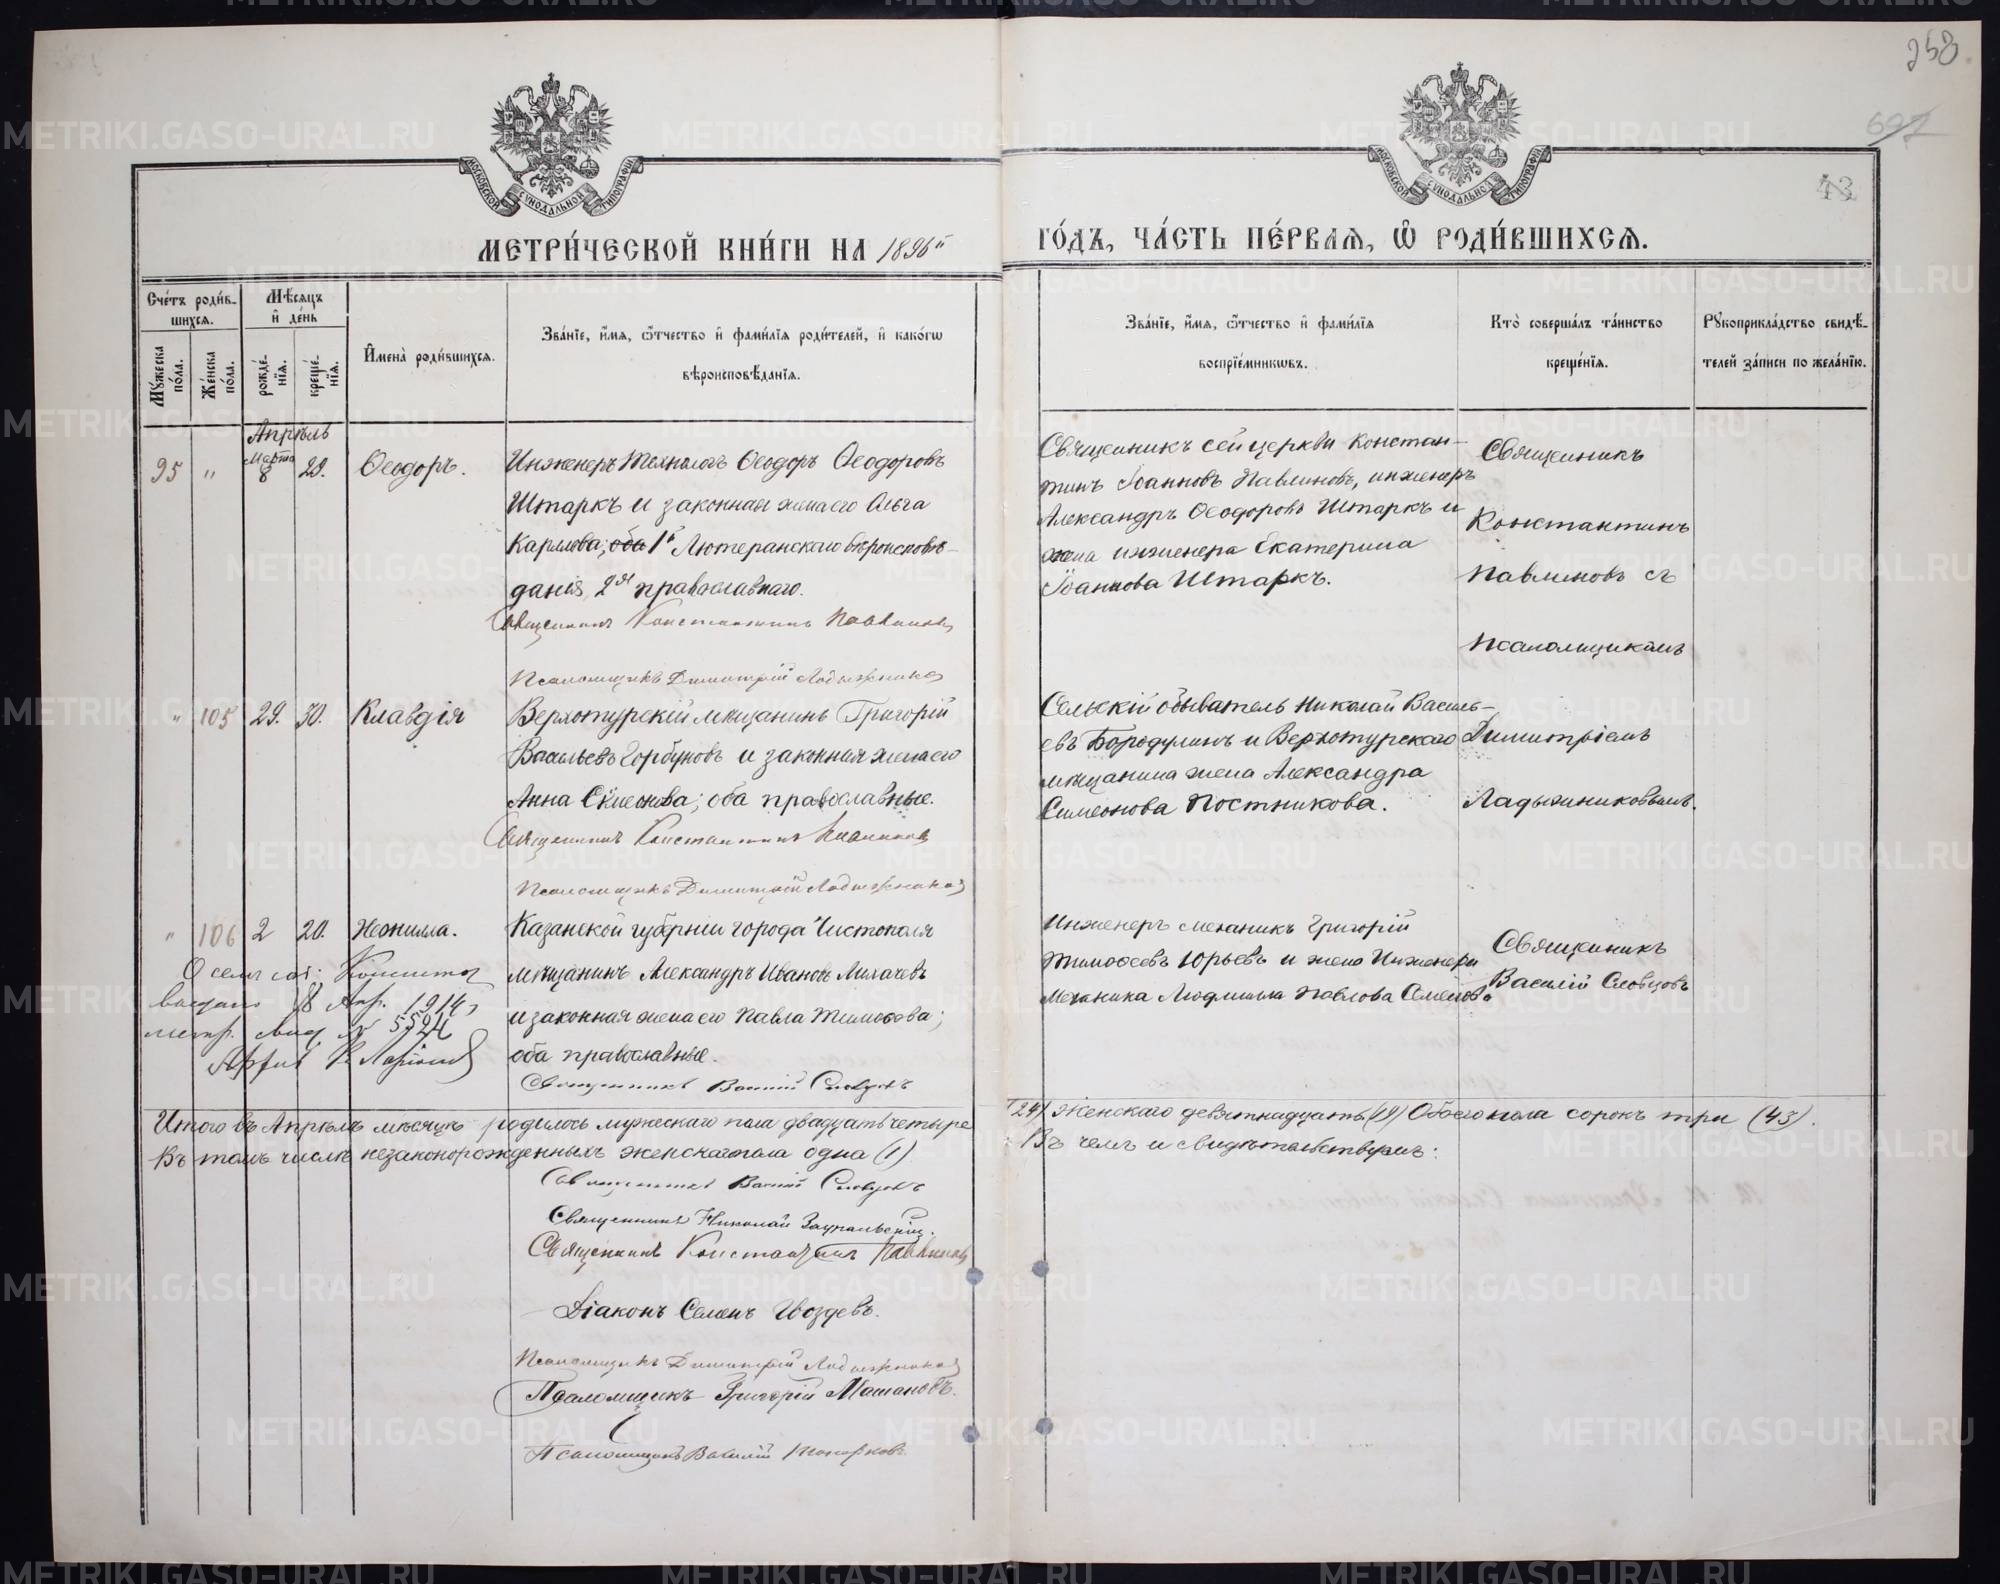 258
697
43
МОСКОВСКОЙ СѴНОДАЛЬНОЙ ТИПОГРАФІИ
МОСКОВСКОЙ СѴНОДАЛЬНОЙ ТИПОГРАФІИ
МЕТРИ́ЧЕСКОЙ КНИ́ГИ НА 1896й
ГО́ДЪ, ЧА́СТЬ ПЕ́РВАѦ, Ѽ РОДИ́ВШИХСѦ.
Сче́тъ роди́в-
шихсѧ.
Мѣ́сѧцъ
и҆ де́нь
Мꙋ́жеска по́ла.
Же́нска по́ла.
рожде́-
нїѧ.
креще́-
нїѧ.
И҆мена̀ роди́вшихсѧ.
Зва́нїе, и҆́мѧ, ѻ҆́тчество и҆ фами́лїѧ роди́телей, и҆ како́гѡ
вѣроисповѣ́данїѧ.
Зва́нїе, и҆́мѧ, ѻ҆́тчество и҆ фами́лїѧ
воспрїе́мникѡвъ.
Кто̀ соверша́лъ та́инство
креще́нїѧ.
Рꙋкоприкла́дство свидѣ́-
телей за́писи по жела́нїю.
Апрѣль
Марта
95 " 8 28. Ѳеодоръ.
Инженеръ Технологъ Ѳеодоръ Ѳеодоровъ
Штаркъ и законная жена его Ольга
Карлова; оба 1й Лютеранскаго вѣроисповѣ-
данія, 2я православнаго.
Священникъ Константинъ Павлиновъ
Псаломщикъ Димитрій Ладыжниковъ
Священникъ сей церкви Констан-
тинъ Іоанновъ Павлиновъ, инженеръ
Александръ Ѳеодоровъ Штаркъ и
жена инженера Екатерина
Іоаннова Штаркъ.
Священникъ
Константинъ
Павлиновъ съ
Псаломщикомъ
Димитріемъ
Ладыжниковымъ.
" 105 29. 30. Клавдія
Верхотурскій мѣщанинъ Григорій
Васильевъ Горбуновъ и законная жена его
Анна Симеонова; оба православные.
Священникъ Константинъ Павлиновъ
Псаломщикъ Димитрій Ладыжниковъ
Сельскій обыватель Николай Василь-
евъ Бородулинъ и Верхотурскаго
мѣщанина жена Александра
Симеонова Постникова.
" 106 2 20. Неонилла.
Казанской губерніи города Чистополя
мѣщанинъ Александръ Ивановъ Михачевъ
и законная жена его Павла Тимоѳеева;
оба православные.
Священникъ Василій Словцовъ
Инженеръ механикъ Григорій
Тимоѳеевъ Юрьевъ и жена Инженера
Механика Людмила Павлова Семенова
Священникъ
Василій Словцовъ
О семъ
выдано 18 Апр. 1914 г.
метр. № 5524
Итого въ Апрѣлѣ мѣсяцѣ родилось мужескаго пола двадцать четыре
(24) женскаго девятнадцать (19) Обоего пола сорокъ три (43).
Въ томъ числѣ незаконорожденныхъ женскаго пола одна (1)
Въ чемъ и свидѣтельствуемъ:
Священникъ Василій Словцовъ
Священникъ Николай Зауральскій
Священникъ Константинъ Павлиновъ
Діаконъ Семенъ Гвоздевъ.
Псаломщикъ Димитрій Ладыжниковъ
Псаломщикъ Григорій Машановъ.
Псаломщикъ Василій